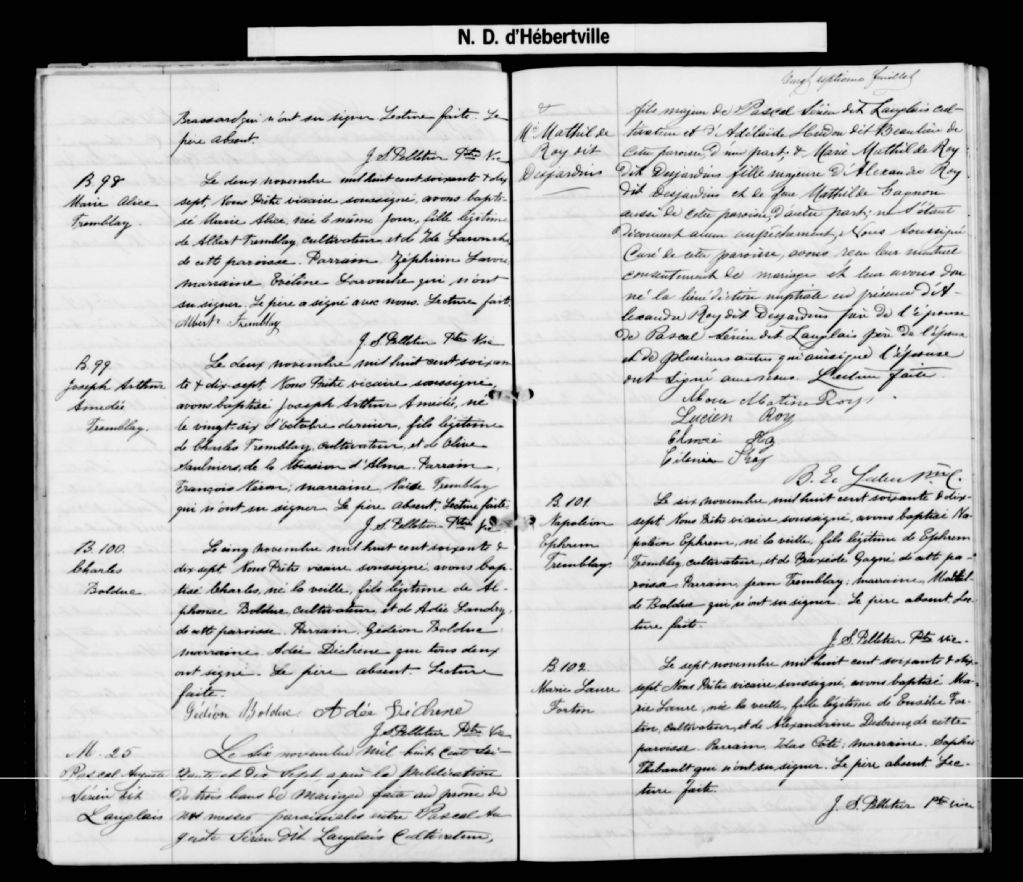 N. D. d'Hébertville
Brassard qui n'ont su signer Lecture faite. Le
père absent.
J. S. Pelletier Ptre Vic
B. 98
Marie Alice
Tremblay.
Le deux novembre mil huit cent soixante & dix
sept, Nous Prêtre vicaire soussigné, avons bapti-
sé Marie Alice, née le même jour, fille légitime
de Albert Tremblay, cultivateur, et de Ida Larouche,
de cette paroisse. Parrain, Ziphirin Lavoie,
marraine Eveline Larouche qui n'ont
su signer. Le père a signé avec nous. Lecture faite
Albert Tremblay
J. S. Pelletier Ptre Vic
B. 99.
Joseph Arthur
Amedée
Tremblay.
Le deux novembre mil huit cent soixan
te & dix-sept, Nous Prêtre vicaire soussigné,
avons baptisé Joseph Arthur Amédée, né
le vingt-six d'octobre dernier, fils légitime
de Charles Tremblay, cultivateur, et de Olive
Saulniers, de la Mission d'Alma. Parrain,
François Néron; marraine Tremblay
qui n'ont su signer. Le père absent. Lecture faite
J. S. Pelletier Ptre Vic
B. 100.
Charles
Bolduc.
Le cinq novembre mil huit cent soixante &
dix sept, Nous Prêtre vicaire soussigné, avons bap
tisé Charles, né la veille, fils légitime de Al-
phonse Bolduc, cultivateur, et de Adée Landry,
de cette paroisse. Parrain, Gédéon Bolduc,
marraine Adée Dichene que tous deux
ont signé. Le père absent. Lecture
faite.
Gédéon Bolduc Adée Dichene
J. S. Pelletier Ptre Vic
M. 25
Pascal Auguste
Sérien dit
Langlais
Le six novembre Mil huit Cent Soi-
xante et Dix Sept, après la publication
de trois bans de Mariage faite au prône de
nos messes paroissiales entre Pascal Au
guste Sérien dit Langlais Cultivateur,
septième feuillet
&
Mie Mathilde
Roy dit
Desjardins
fils majeur de Pascal Sérien dit Langlais cul-
tivateur et d'Adélaïde Hudon dit Beaulieu de
cette paroisse, d'une part; & Marie Mathilde Roy
dit Desjardins fille majeure d'Alexandre Roy
dit Desjardins et de Mathilde Gagnon
aussi de cette paroisse, d'autre part; ne s'étant
découvert aucun empêchement, Nous Soussigné
Curé de cette paroisse, avons reçu leur mutuel
consentement de mariage et leur avons don
né la bénédiction nuptiale en présence d'A-
lexandre Roy dit Desjardins père de l'épouse
de Pascal Sérien dit Langlais père de l'époux
et de plusieurs autres qui l'épouse
ont signé avec nous. Lecture faite.
Roy
Lucien Roy
Elmire Roy
Roy
B. E. Ptre C.
B. 101.
Napoléon
Ephrem
Tremblay.
Le six novembre, mil huit cent soixante & dix-
sept, Nous Prêtre vicaire soussigné, avons baptisé Na-
poléon Ephrem, né la veille, fils légitime de Ephrem
Tremblay, cultivateur, et de Praxède Gagné de cette pa-
roisse. Parrain, jean Tremblay; marraine, Mathil-
de Bolduc qui n'ont su signer. Le père absent. Lec-
ture faite.
J. S. Pelletier Ptre vic.
B. 102.
Marie Laure
Fortin
Le sept novembre mil huit cent soixante & dix-
sept Nous Prêtre vicaire, soussigné, avons baptisé Ma-
rie Laure, née la veille, fille légitime de Eusèbe For-
tin, cultivateur, et de Alexandrine Desbiens, de cette
paroisse. Parrain, Côté, marraine, Sophie
Thibault qui n'ont su signer. Le père absent. Lec-
ture faite.
J. S. Pelletier Ptre vic